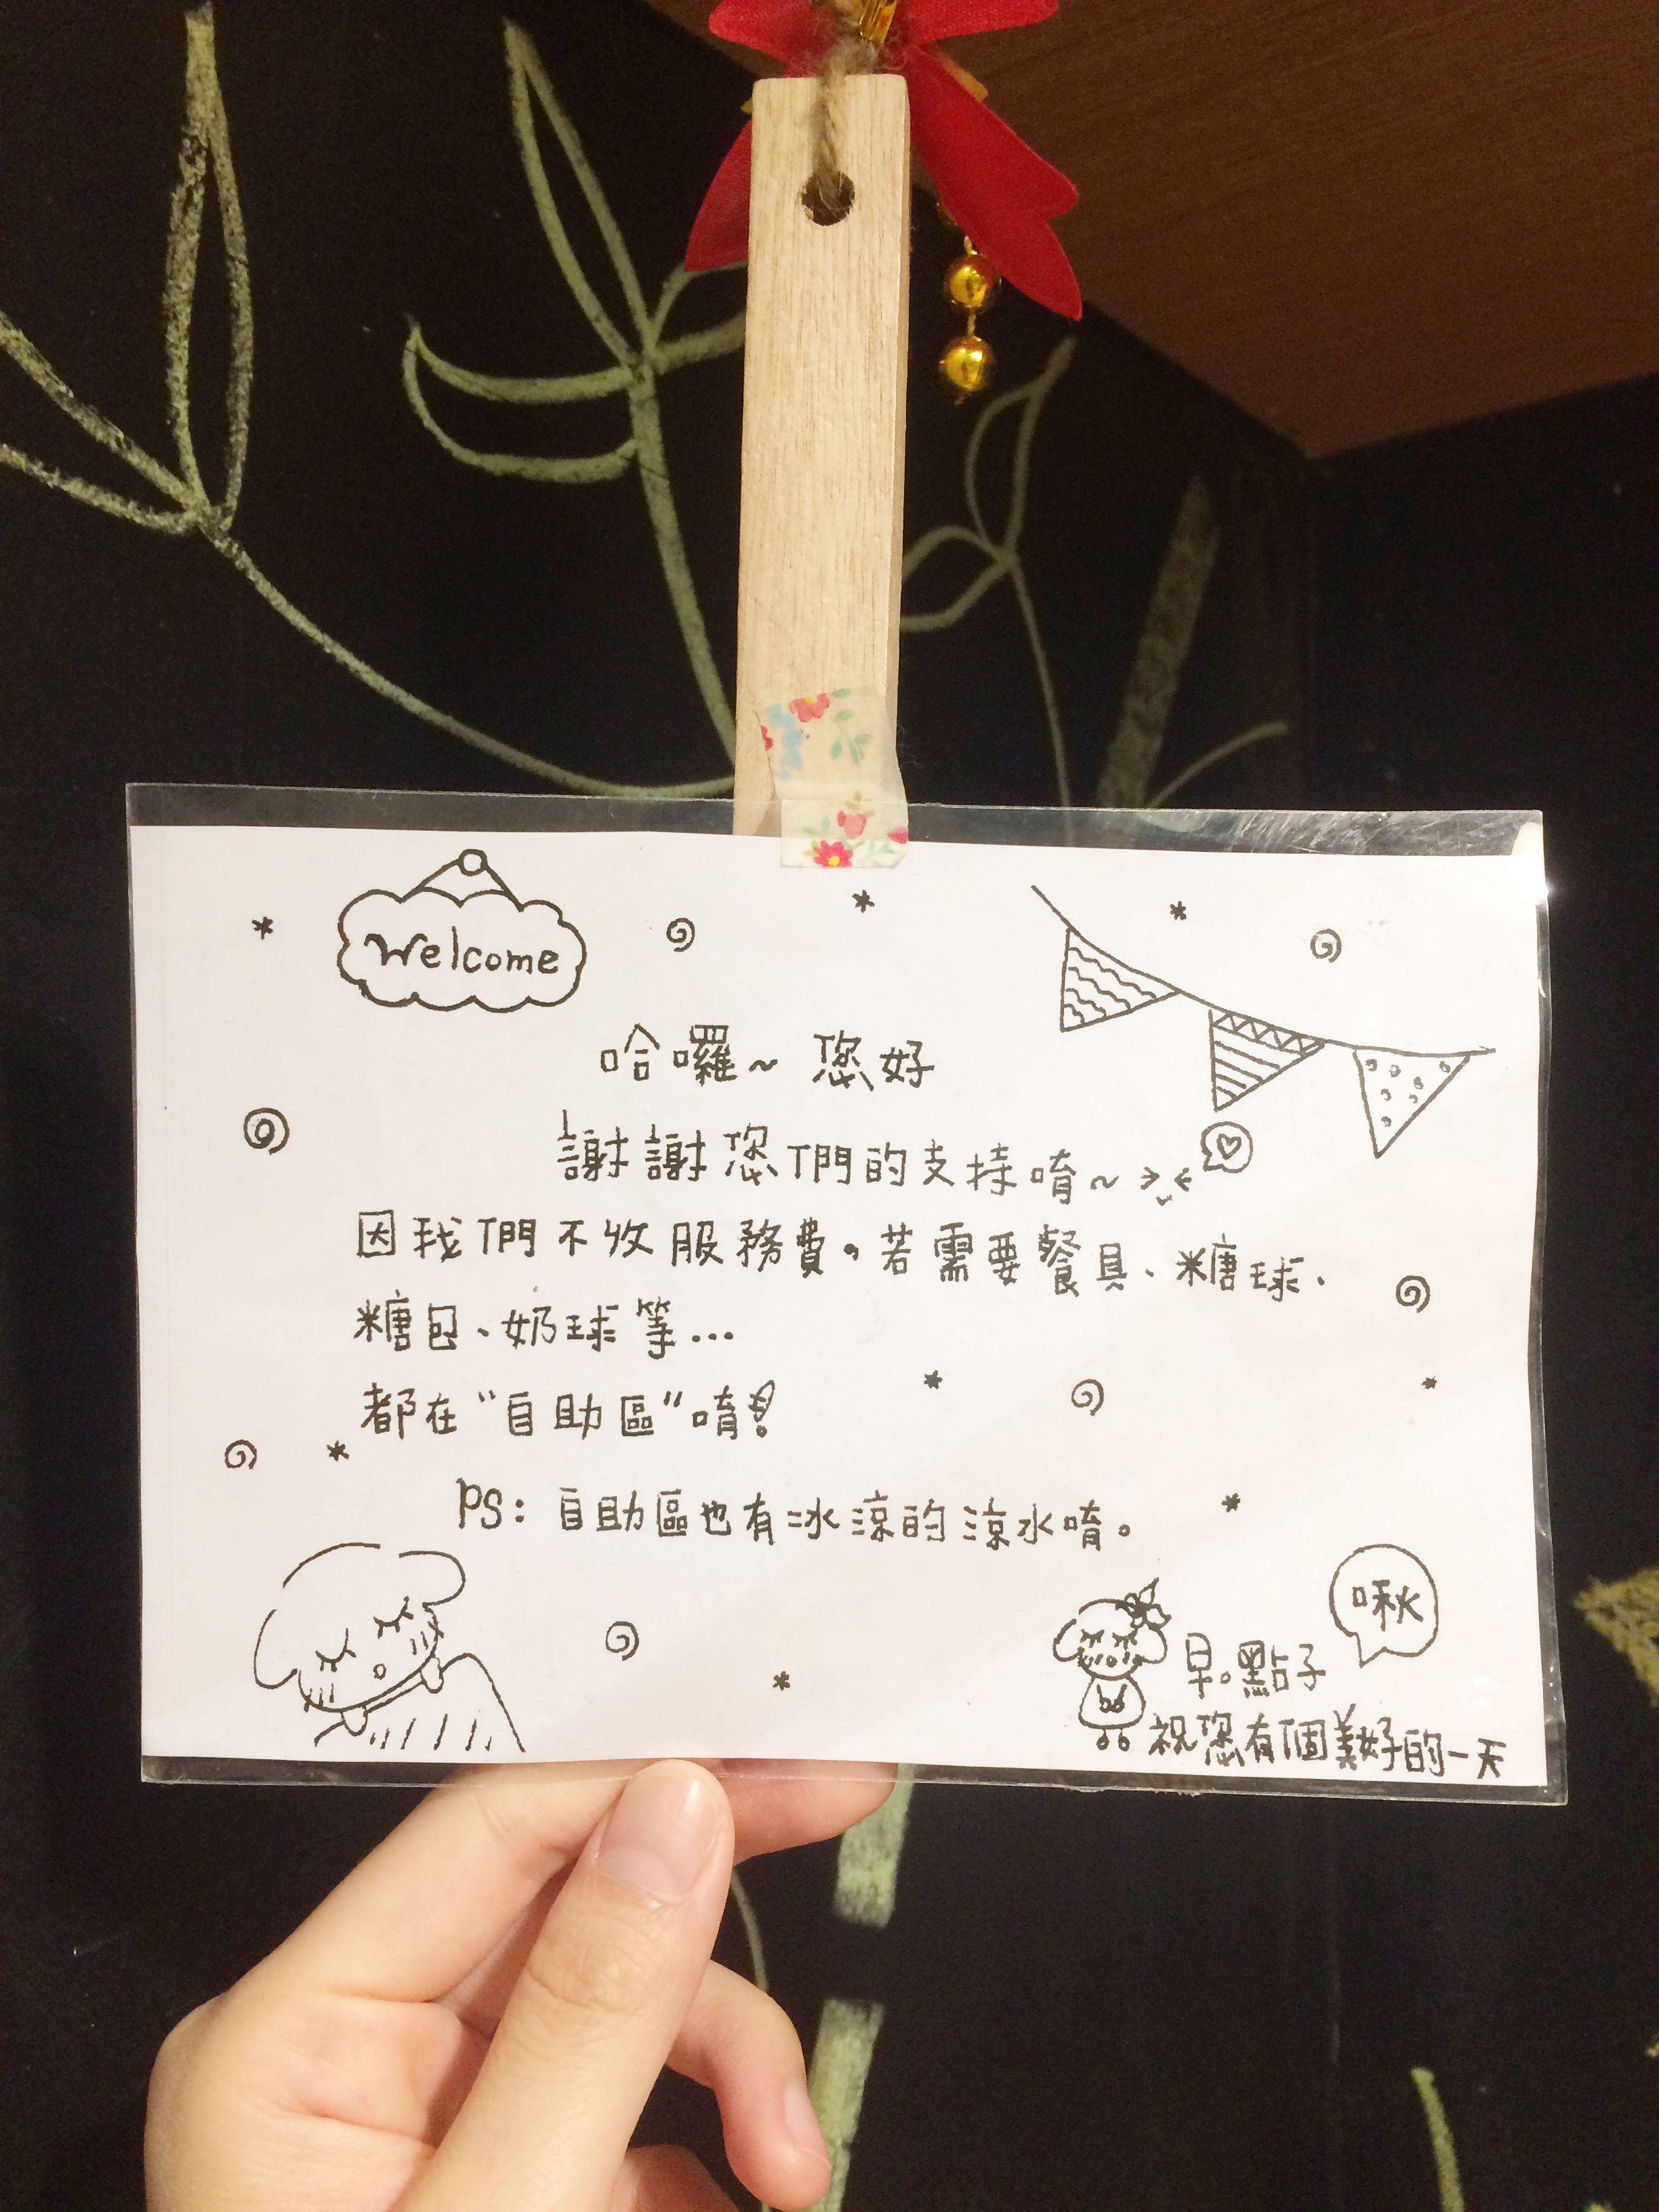 Welcome
哈囉~ 您好
謝謝您們的支持唷~
因我們不收服務費。若需要餐具、糖球、
糖包、奶球等...
都在“自助區”唷!
PS: 自助區也有冰涼的涼水唷。
啾
早。點子
祝您有個美好的一天